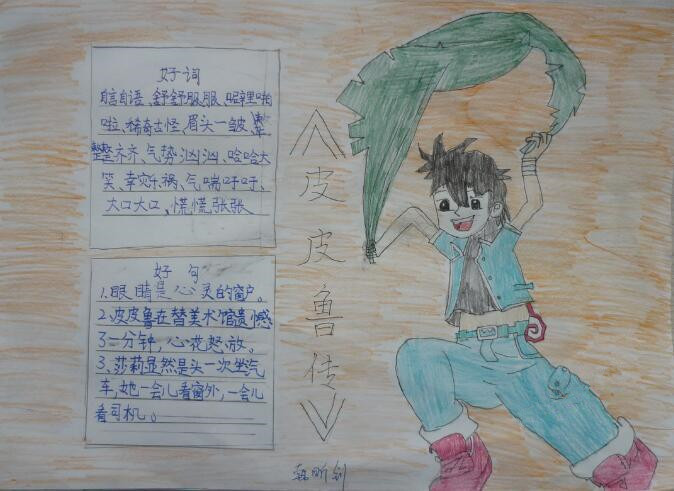 好词
自言自语、舒舒服服、噼里啪
啦、稀奇古怪、眉头一皱、
整齐齐、气势汹汹、哈哈大
笑、幸灾乐祸、气喘吁吁、
大口大口、慌慌张张
好句
1.眼睛是心灵的窗户。
2.皮皮鲁在替美术馆遗憾
3一分钟,心花怒放。
3、莎莉显然是头一次坐汽
车,她一会儿看窗外,一会儿
看司机。
《皮皮鲁传》